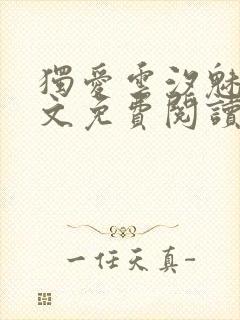 獨愛雲汐魅
文免費閱讀
一任天真-